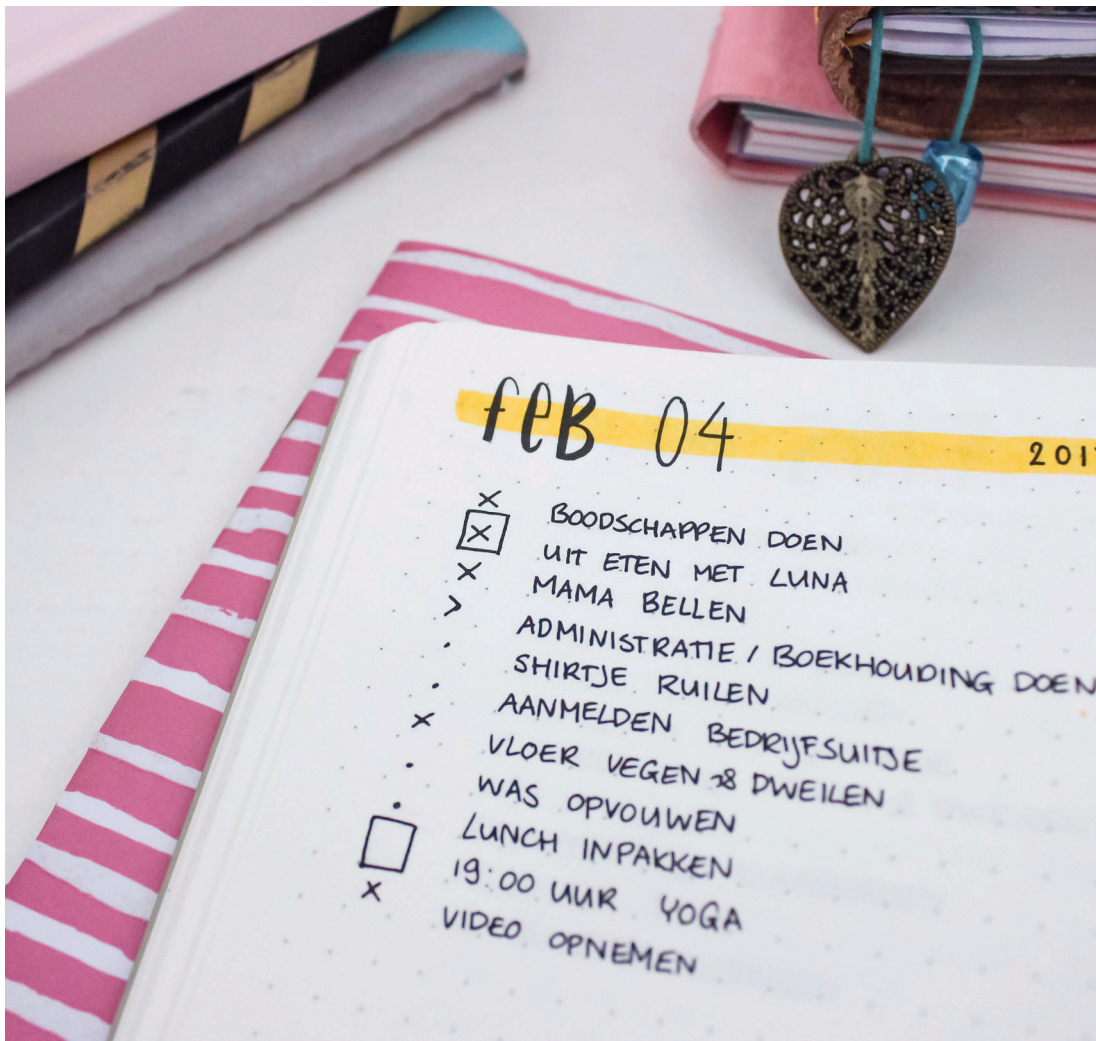 feB 04
201
× BOODSCHAPPEN DOEN
× UIT ETEN MET LUNA
× MAMA BELLEN
> ADMINISTRATIE / BOEKHOUDING DOEN
· SHIRTJE RUILEN
· AANMELDEN BEDRIJFSUITJE
× VLOER VEGEN & DWEILEN
· WAS OPVOUWEN
· LUNCH INPAKKEN
19:00 UUR YOGA
× VIDEO OPNEMEN